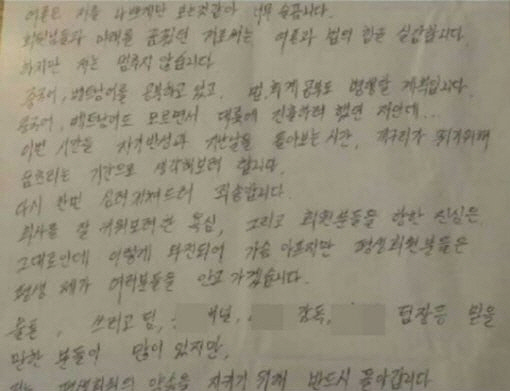 여론은 저를 나쁘게만 보는것같아 너무 슬픕니다.
회원님들과 미래를 꿈꾸던 저로써는 여론과 법의 힘을 실감합니다.
하지만 저는 멈추지 않습니다
중국어, 베트남어를 공부하고 있고. 법, 회계 공부도 병행할 계획입니다.
중국어, 베트남어도 모르면서 대륙에 진출하려 했던 저인데...
이번 시간을 자기반성과 지난날을 돌아보는 시간, 개구리가 뛰기위해
움츠리는 기간으로 생각해보려 합니다.
다시 한번 심려끼쳐드려 죄송합니다.
회사를 잘 키워보려한 욕심, 그리고 회원분들을 향한 진심은
그대로인데 이렇게 와전되어 가슴 아프지만 평생회원분들은
평생 제가 여러분들을 안고 가겠습니다.
물론, 쓰리고 팀, 채널, 감독, 팀장등 믿을
만한 분들이 많이 있지만,
저는 평생회원의 약속을 지키기 위해 반드시 돌아갑니다